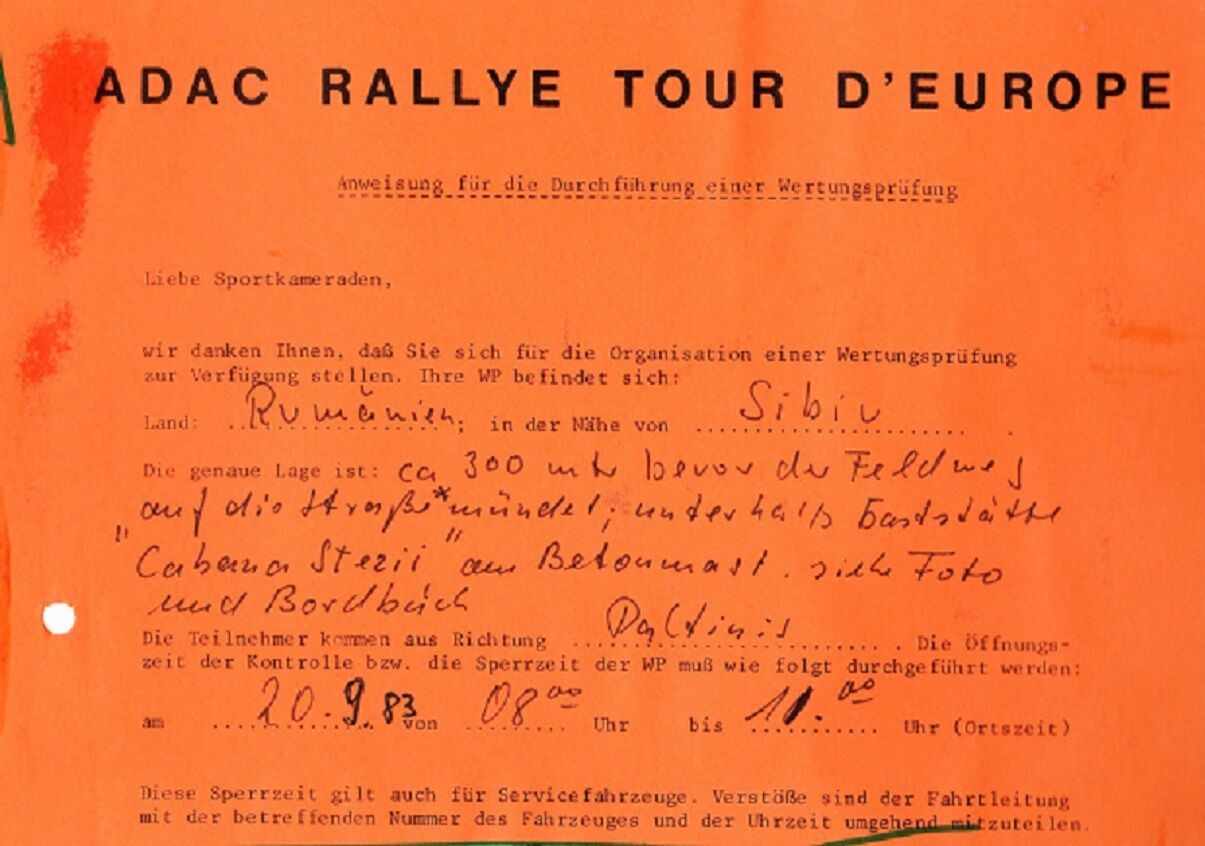 ADAC RALLYE TOUR D'EUROPE
Anweisung für die Durchführung einer Wertungsprüfung
Liebe Sportkameraden,
wir danken Ihnen, daß Sie sich für die Organisation einer Wertungsprüfung
zur Verfügung stellen. Ihre WP befindet sich:
Land: Rumänien; in der Nähe von Sibiu .
Die genaue Lage ist: ca 300 mtr bevor der Feldweg
auf die Straße* mündet, unterhalb Gaststätte
"Cabana Stezii" am Betonmast. siehe Foto
und Bordbuch
Die Teilnehmer kommen aus Richtung Paltinis . Die Öffnungs-
zeit der Kontrolle bzw. die Sperrzeit der WP muß wie folgt durchgeführt werden:
am 20.9.83 von 08 00 Uhr bis 11. 00 Uhr (Ortszeit)
Diese Sperrzeit gilt auch für Servicefahrzeuge. Verstöße sind der Fahrtleitung
mit der betreffenden Nummer des Fahrzeuges und der Uhrzeit umgehend mitzuteilen.